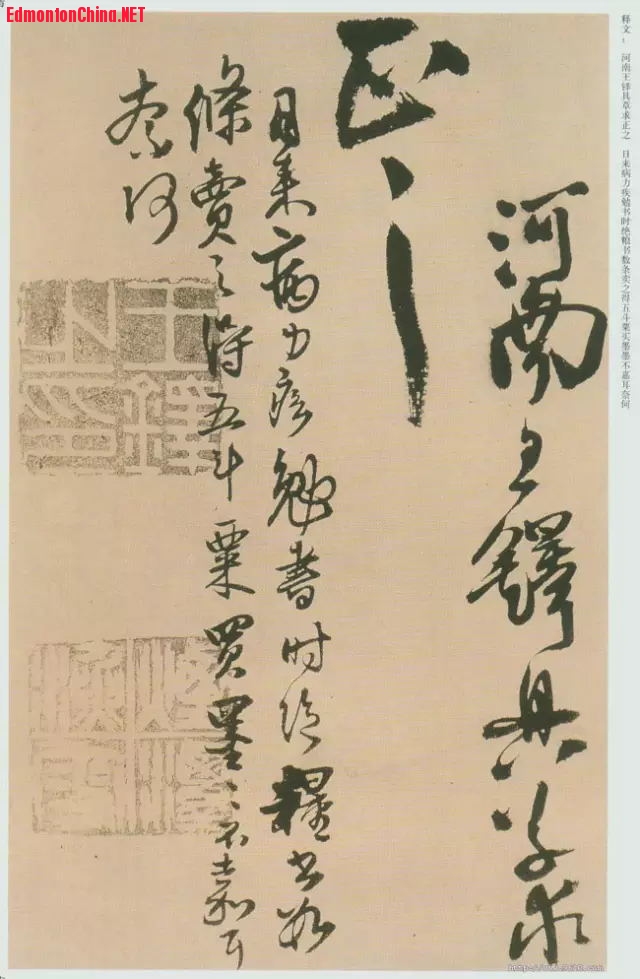 EdmontonChina.NET
释文： 河南王铎具草求正之 日来病力疾勉书时绝粮书数条卖之得五斗粟买墨墨不嘉耳奈何
河南王鐸具草求
正之
日来病力疾勉書时绝糧書数
條賣之得五斗粟買墨〻不嘉耳
柰何
王鐸之印